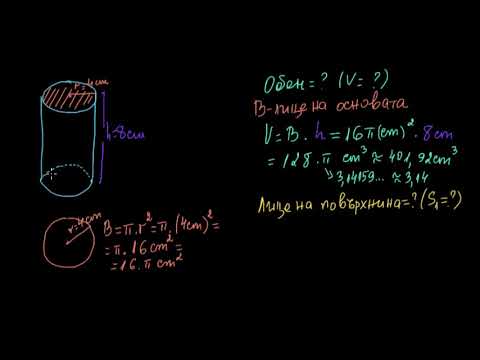 r=4cm
h=8cm
r=4cm
B=π.r²=π.(4cm)²=
=π.16cm²=
=16.π cm²
Обем=? (V=?)
B-лице на основата
V=B.h=16π(cm)².8cm
=128.π cm³≈401,92cm³
3,14159...≈3,14
Лице на повърхнина=?(S₁=?)